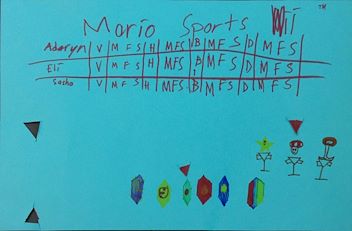 Mario Sports Wii ™
Aderyn V M F S H MFS B M F S D M F S
Eli V M F S H MFS B M F S D M F S
Sasha V M F S H MFS B M F S D M F S